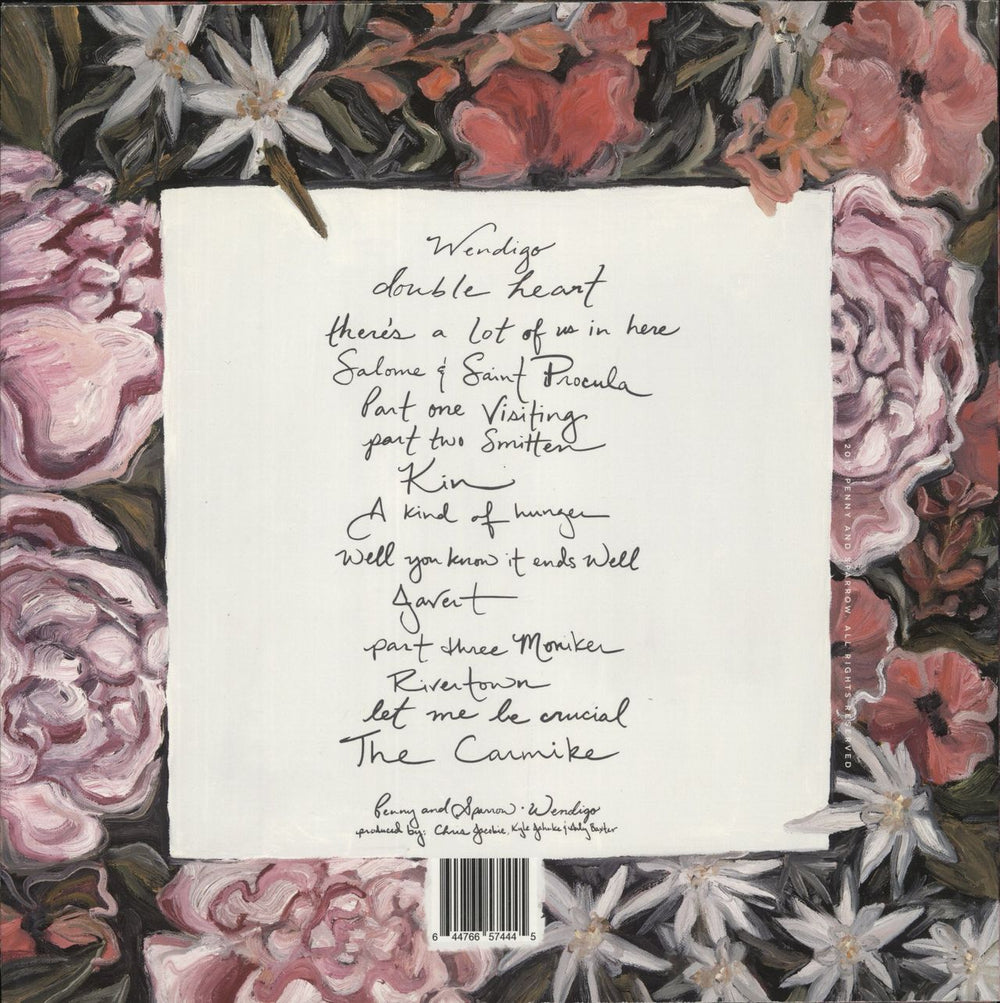 Wendigo
double heart
there's a lot of us in here
Salome & Saint Procula
Part one Visiting
part two Smitten
Kin
A kind of hunger
Well you know it ends Well
Javert
part three Moniker
Rivertown
let me be crucial
The Carmike
Penny and Sparrow · Wendigo
produced by: Chris Jacobie, Kyle Jahnke & Andy Baxter
PENNY AND SPARROW. ALL RIGHTS RESERVED
6 44766 57444 5